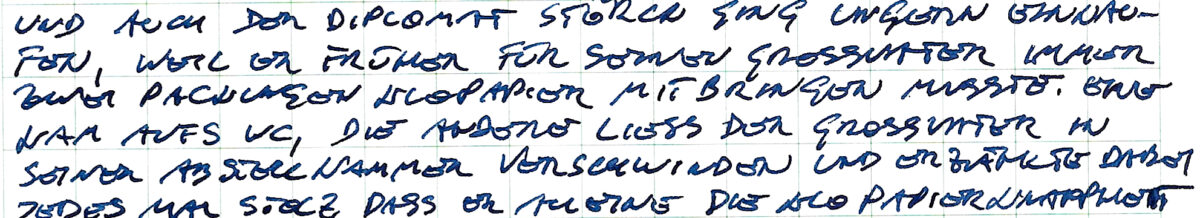 UND AUCH DER DIPLOMAT STÖRCK GING UNGERN EINKAU-
FEN, WEIL ER FRÜHER FÜR SEINEN GROSSVATER IMMER
ZWEI PACKUNGEN KLOPAPIER MITBRINGEN MUSSTE. EINE
KAM AUFS WC, DIE ANDERE LIESS DER GROSSVATER IN
SEINER ABSTELLKAMMER VERSCHWINDEN UND ERZÄHLTE DABEI
JEDES MAL STOLZ DASS ER ALLEINE DIE KLOPAPIERKNAPPHEIT